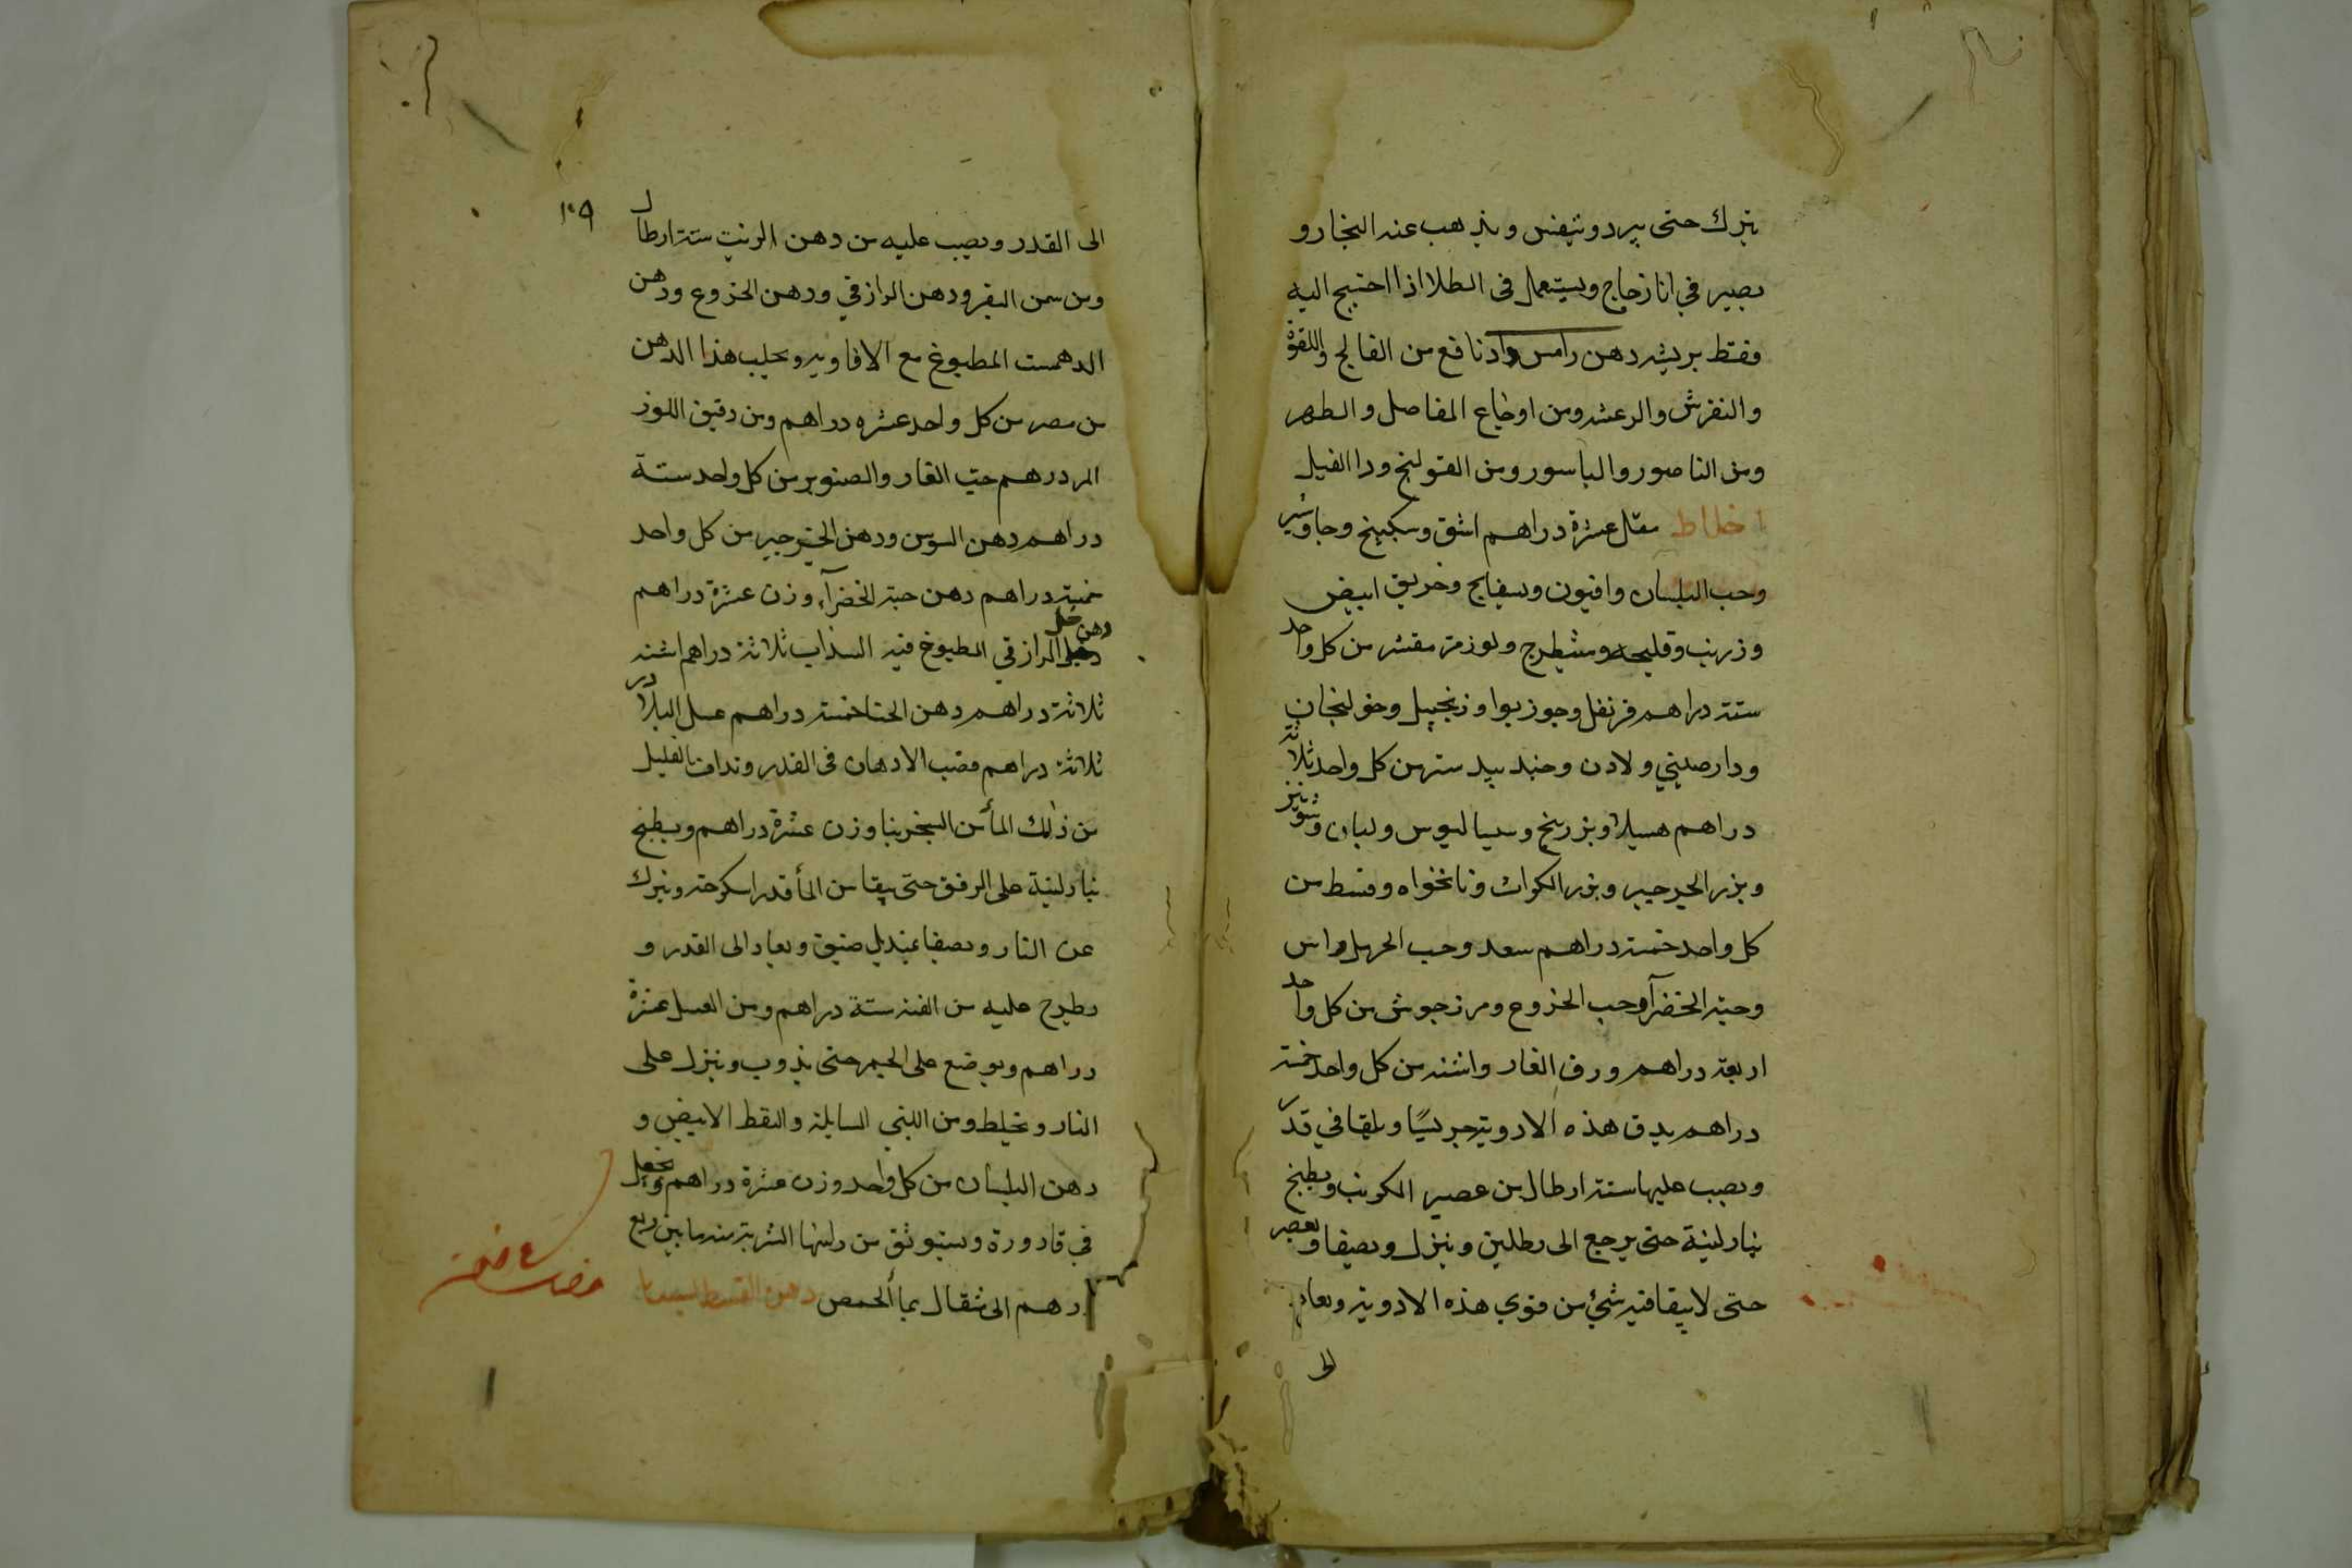 يترك حتى يبرد ويتنفس ويذهب عنه البخار و
يصير في انا زجاج ويستعمل في الطلا اذا احتيج اليه
وفقط بريشه دهن رامس واد نافع من الفالج واللقوة
والنقرش والرعشه ومن اوجاع المفاصل والظهر
ومن الناصور والباسور ومن القولنج ودا الفيل
اخلاط مقل عشرة دراهم اشق وسكبينج وجاوشير
وحب البلسان وافيون وبسفايج وخربق ابيض
وزرنب وقليجه وشيطرج ولوز مر مقشر من كل واحد
ستة دراهم قرنفل وجوزبوا وزنجبيل وخولنجان
ودارصيني ولادن وجندبيدستر من كل واحد ثلاثة
دراهم هسيلا وبزربنج وسيساليوس ولبان وشونيز
وبزر الجرجير وبزر الكراث ونانخواه وقسط من
كل واحد خمسة دراهم سعد وحب الحرمل وراس
وحبة الخضرآ وحب الخزوع ومرزجوش من كل واحد
اربعة دراهم ورق الغار واشنه من كل واحد خمسة
دراهم يدق هذه الادوية جريسًا ويلقا في قدر
ويصب عليها ستة ارطال من عصير الكرنب ويطبخ
بنار لينة حتى يرجع الى رطلين وينزل ويصفا ويعصر
حتى لا يبقا فيه شئ من قوي هذه الادوية ويعاد
الى
١٠٩
الى القدر ويصب عليه من دهن الزيت ستة ارطال
ومن سمن البقر ودهن الرازقي ودهن الخزوع ودهن
الدهمست المطبوخ مع الافاويه ويحلب هذا الدهن
من مصر من كل واحد عشره دراهم ومن دقيق اللوز
المر درهم حب الغار والصنوبر من كل واحد ستة
دراهم دهن السوسن ودهن الخيرجير من كل واحد
خمسة دراهم دهن حبة الخضرآء وزن عشرة دراهم
دهن خل الرازقي المطبوخ فيه السداب ثلاثة دراهم اشنه
ثلاثة دراهم دهن الحنا خمسة دراهم عسل البلادر
ثلاثة دراهم فصب الادهان في القدر وتداف بالقليل
من ذلك المأ من السجزينا وزن عشرة دراهم ويطبخ
بنار لينة على الرفق حتى يبقا من المأ قدر اسكرجه ويترك
عن النار ويصفا بمنديل صفيق ويعاد الى القدر و
يطرح عليه من القنه ستة دراهم ومن العسل عشرة
دراهم ويوضع على الجمر حتى يذوب وينزل على
النار ويخلط ومن اللبني السايلة والنفط الابيض و
دهن البلسان من كل واحد وزن عشرة دراهم ويجعل
في قارورة ويستوثق من راسها الشربة منه ما بين ربع
درهم الى مثقال بمأ الحمص دهن القسط